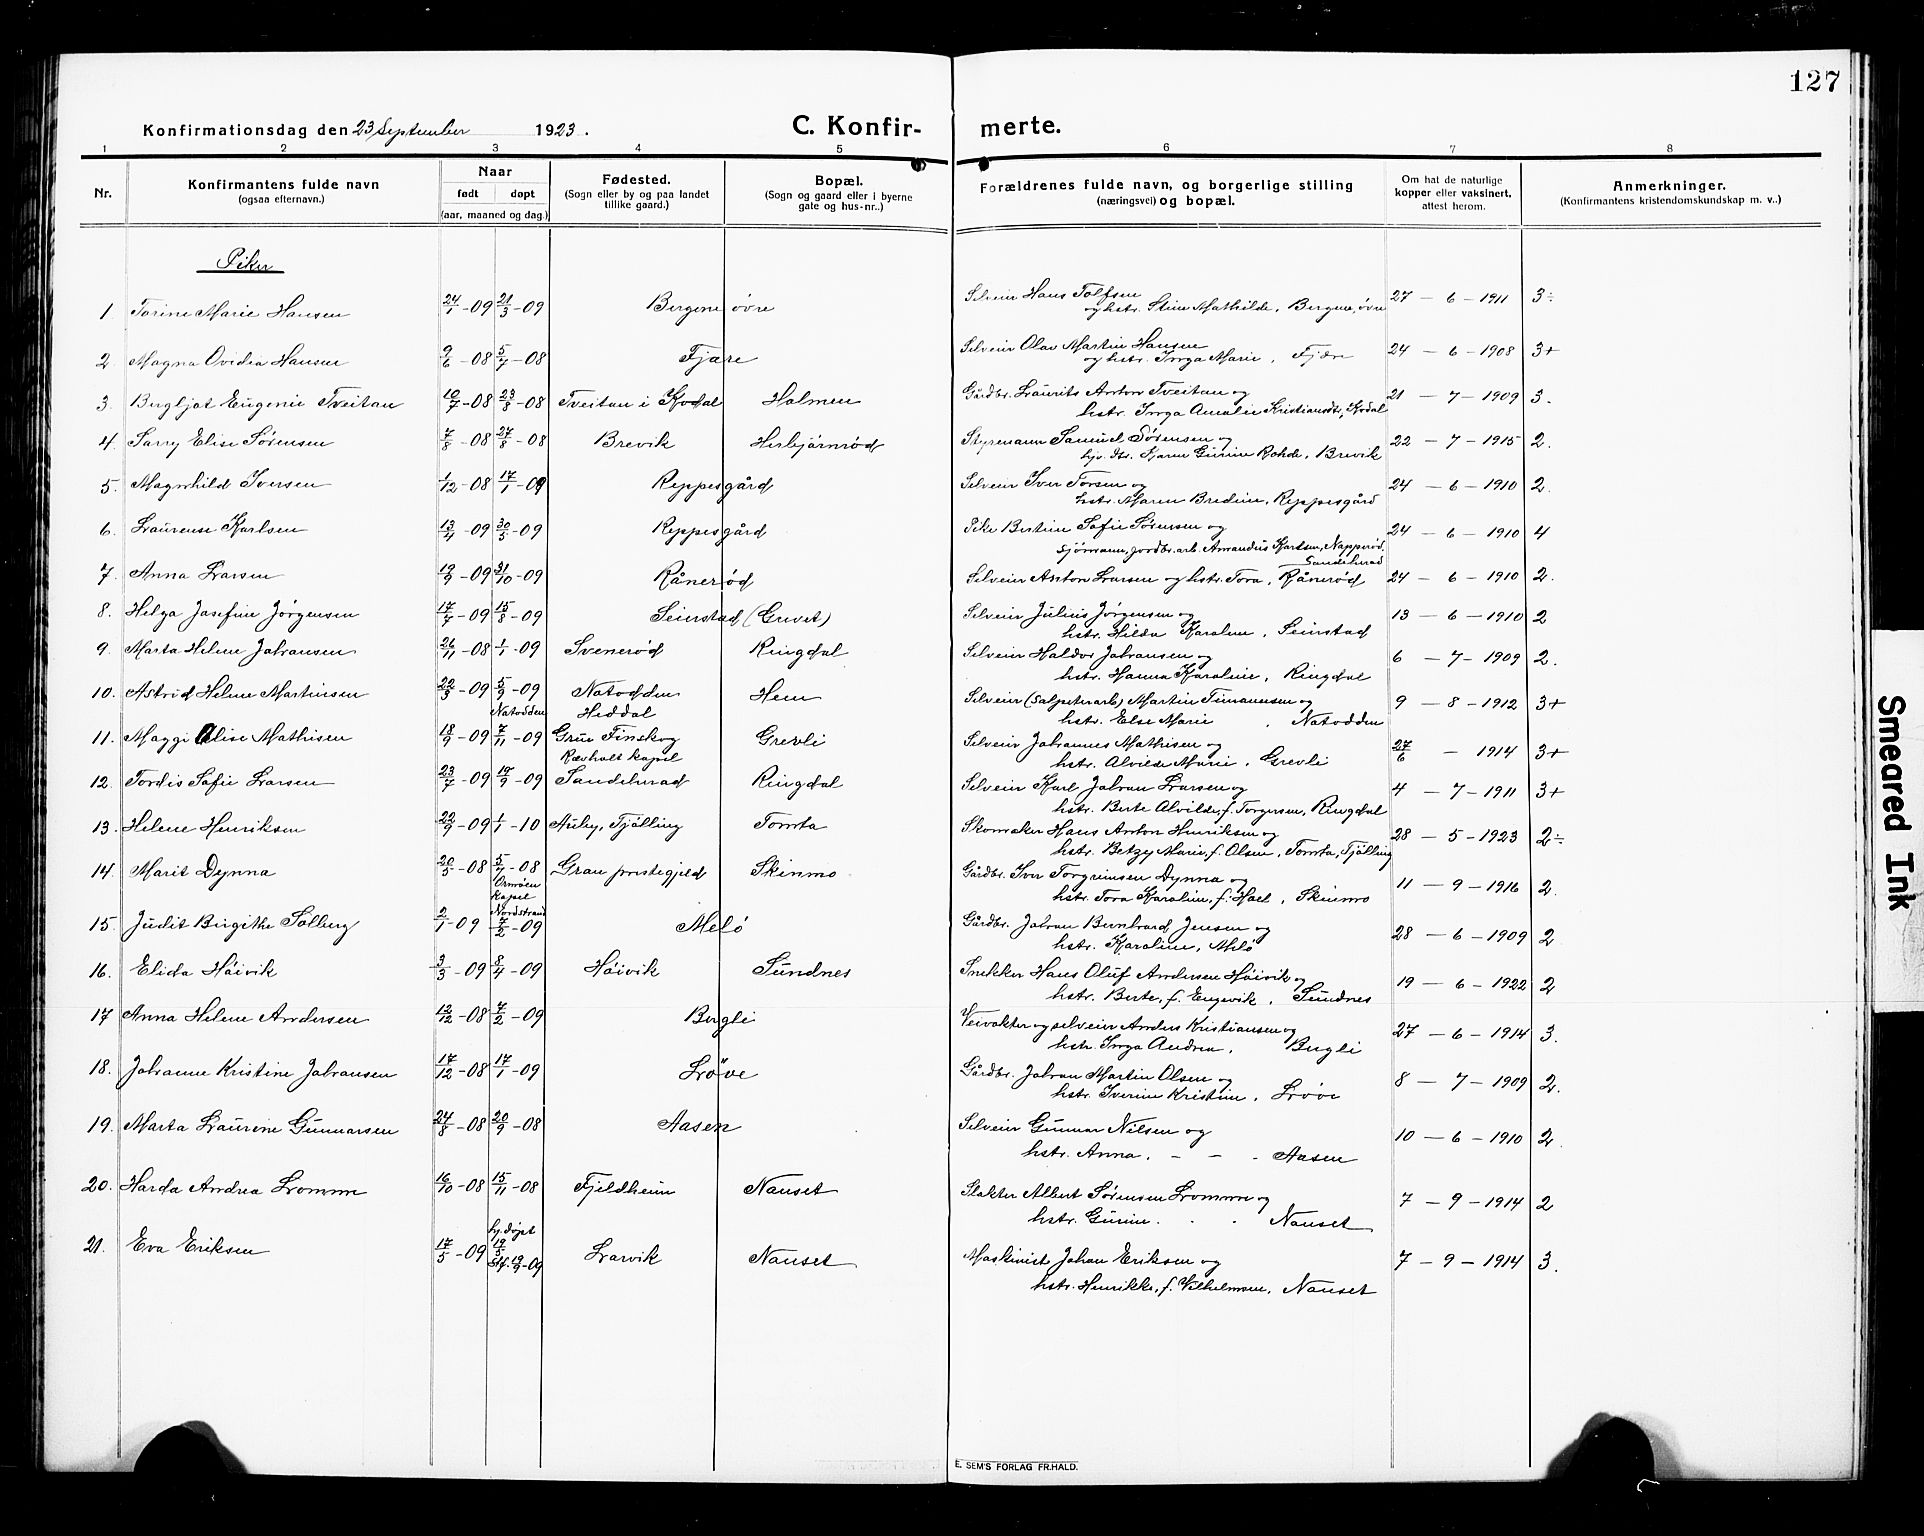 127
Konfirmationsdag den 23 September 1923.
C. Konfir-merte.
1 2 3 4 5 6 7 8
Nr.
Konfirmantens fulde navn
(ogsaa efternavn.)
Naar
født døpt
(aar, maaned og dag.)
Fødested.
(Sogn eller by og paa landet
tillike gaard.)
Bopæl.
(Sogn og gaard eller i byerne
gate og hus-nr..)
Forældrenes fulde navn, og borgerlige stilling
(næringsvei) og bopæl.
Om hat de naturlige
kopper eller vaksinert,
attest herom.
Anmerkninger.
(Konfirmantens kristendomskundskap m. v..)
Piker
1. Torine Marie Hansen 24/1-09 21/3-09 Bergene øvre Selveier Hans Tolfsen 27-6-1911 3÷
og hstr. Stine Mathilde, Bergene, øvre
2. Magna Ovidia Hansen 9/6-08 5/7-08 Fjære Selveier Olav Martin Hansen 24-6-1908 3+
og hstr. Inga Marie, Fjære
3. Bergljot Eugenie Tveitan 10/7-08 23/8-08 Tveitan i Kodal Holmen Gårdbr. Laurits Anton Tveitan og 21-7-1909 3.
hstr. Inga Amalie Kristiansdtr, Kodal
4. Sarry Elise Sørensen 7/8-08 27/8-08 Brevik Hesbjörnröd Styremann Samuel Sørensen og 22-7-1915 2.
hjv. dtr. Karen Gurine Rohde, Brevik
5. Magnhild Iversen 1/12-08 17/1-09 Reppesgård Selveier Iver Torsen og 24-6-1910 2.
hstr. Maren Bredine, Reppesgård
6. Laurense Karlsen 13/4-09 30/5-09 Reppesgård Pike Bertine Sofie Sørensen og 24-6-1910 4
sjömann, jordbr.arb. Amandus Karlsen, Napperöd,
Sandeherad
7. Anna Larsen 19/9-09 31/10-09 Råneröd Selveier Anton Larsen og hstr. Tora, Råneröd 24-6-1910 2.
8. Helga Josefine Jörgensen 17/7-09 15/8-09 Seierstad (Gruvet) Selveier Julius Jörgensen og 13-6-1910 2
hstr. Hilda Karoline, Seierstad
9. Marta Helene Johansen 26/11-08 1/1-09 Sveneröd Ringdal Selveier Haldor Johansen og 6-7-1909 2.
hstr. Hanna Karoline, Ringdal
10. Astrid Helene Martinsen 22/3-09 5/9-09 Natodden Hem Selveier (Salpeterarb) Martin Timansen og 9-8-1912 3+
Natodden Heddal hstr. Else Marie, Natodden
11. Maggi Alise Mathisen 18/9-09 7/11-09 Grue Finskog Grevli Selveier Johannes Mathisen og 27/6-1914 3+
Rævholt kapel hstr. Alvilde Marie, Grevli
12. Tordis Sofie Larsen 23/7-09 19/9-09 Sandeherad Ringdal Selveier Karl Johan Larsen og 4-7-1911 3+
hstr. Berte Alvilde, f. Torgersen, Ringdal
13. Helene Henriksen 22/9-09 1/1-10 Auby, Tjölling Tomta Skomaker Hans Anton Henriksen og 28-5-1923 2÷
hstr. Betzy Marie, f. Olsen, Tomta, Tjölling
14. Marit Dynna 20/5-08 5/7-08 Gran prestegjeld Skinmo Gårdbr. Iver Torgrimsen Dynna og 11-9-1916 2.
Ormöen kapel hstr. Tora Karoline, f. Hoel, Skinmo
Nordstrand
15. Judit Birgithe Solberg 2/1-09 7/2-09 Melö Gårdbr. Johan Bernhard Jensen og 28-6-1909 2
hstr. Karoline, Melö
16. Elida Höivik 3/3-09 8/4-09 Höivik Sundnes Snekker Hans Oluf Andersen Höivik og 19-6-1922 2
hstr. Berte, f. Engevik, Sundnes
17 Anna Helene Andersen 12/12-08 7/2-09 Bergli Veivokter og selveier Anders Kristiansen og 27-6-1914 3.
hstr. Inga Andrea, Bergli
18. Johanne Kristine Johansen 17/12-08 17/1-09 Löve Gårdbr. Johan Martin Olsen og 8-7-1909 2.
hstr. Iverine Kristine, Löve
19. Marta Laurine Gunnarsen 24/8-08 20/9-08 Aasen Selveier Gunnar Nilsen og 10-6-1910 2.
hstr. Anna. - - - Aasen
20. Harda Andrea Lomme 16/10-08 15/11-08 Fjeldheim Nanset Slakter Albert Sörensen Lomme og 7-9-1914 2
hstr. Gurine. . . Nanset
21. Eva Eriksen 17/5-09 hj. döpt 19/5 stf. 12/9-09 Larvik Nanset Maskinist Johan Eriksen og 7-9-1914 3.
hstr. Henrikke, f. Vilhelmsen, Nanset
E. SEM'S FORLAG FR.HALD.
Smeared Ink